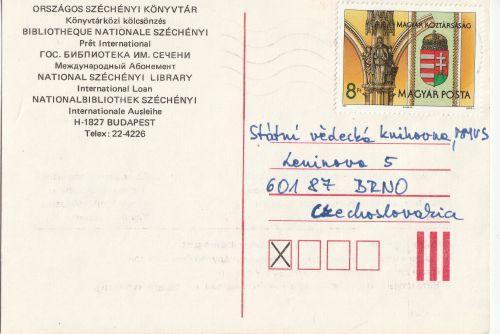 ORSZÁGOS SZÉCHÉNYI KÖNYVTÁR
Könyvtárközi kölcsönzés
BIBLIOTHEQUE NATIONALE SZÉCHÉNYI
Prêt International
ГОС. БИБЛИОТЕКА ИМ. СЕЧЕНИ
Международный Абонемент
NATIONAL SZÉCHÉNYI LIBRARY
International Loan
NATIONALBIBLIOTHEK SZÉCHÉNYI
Internationale Ausleihe
H-1827 BUDAPEST
Telex: 22-4226
MAGYAR KÖZTÁRSASÁG
8 Ft
MAGYAR POSTA
Státní vědecká knihovna, MMVS
Leninova 5
601 87 BRNO
Czechoslovakia